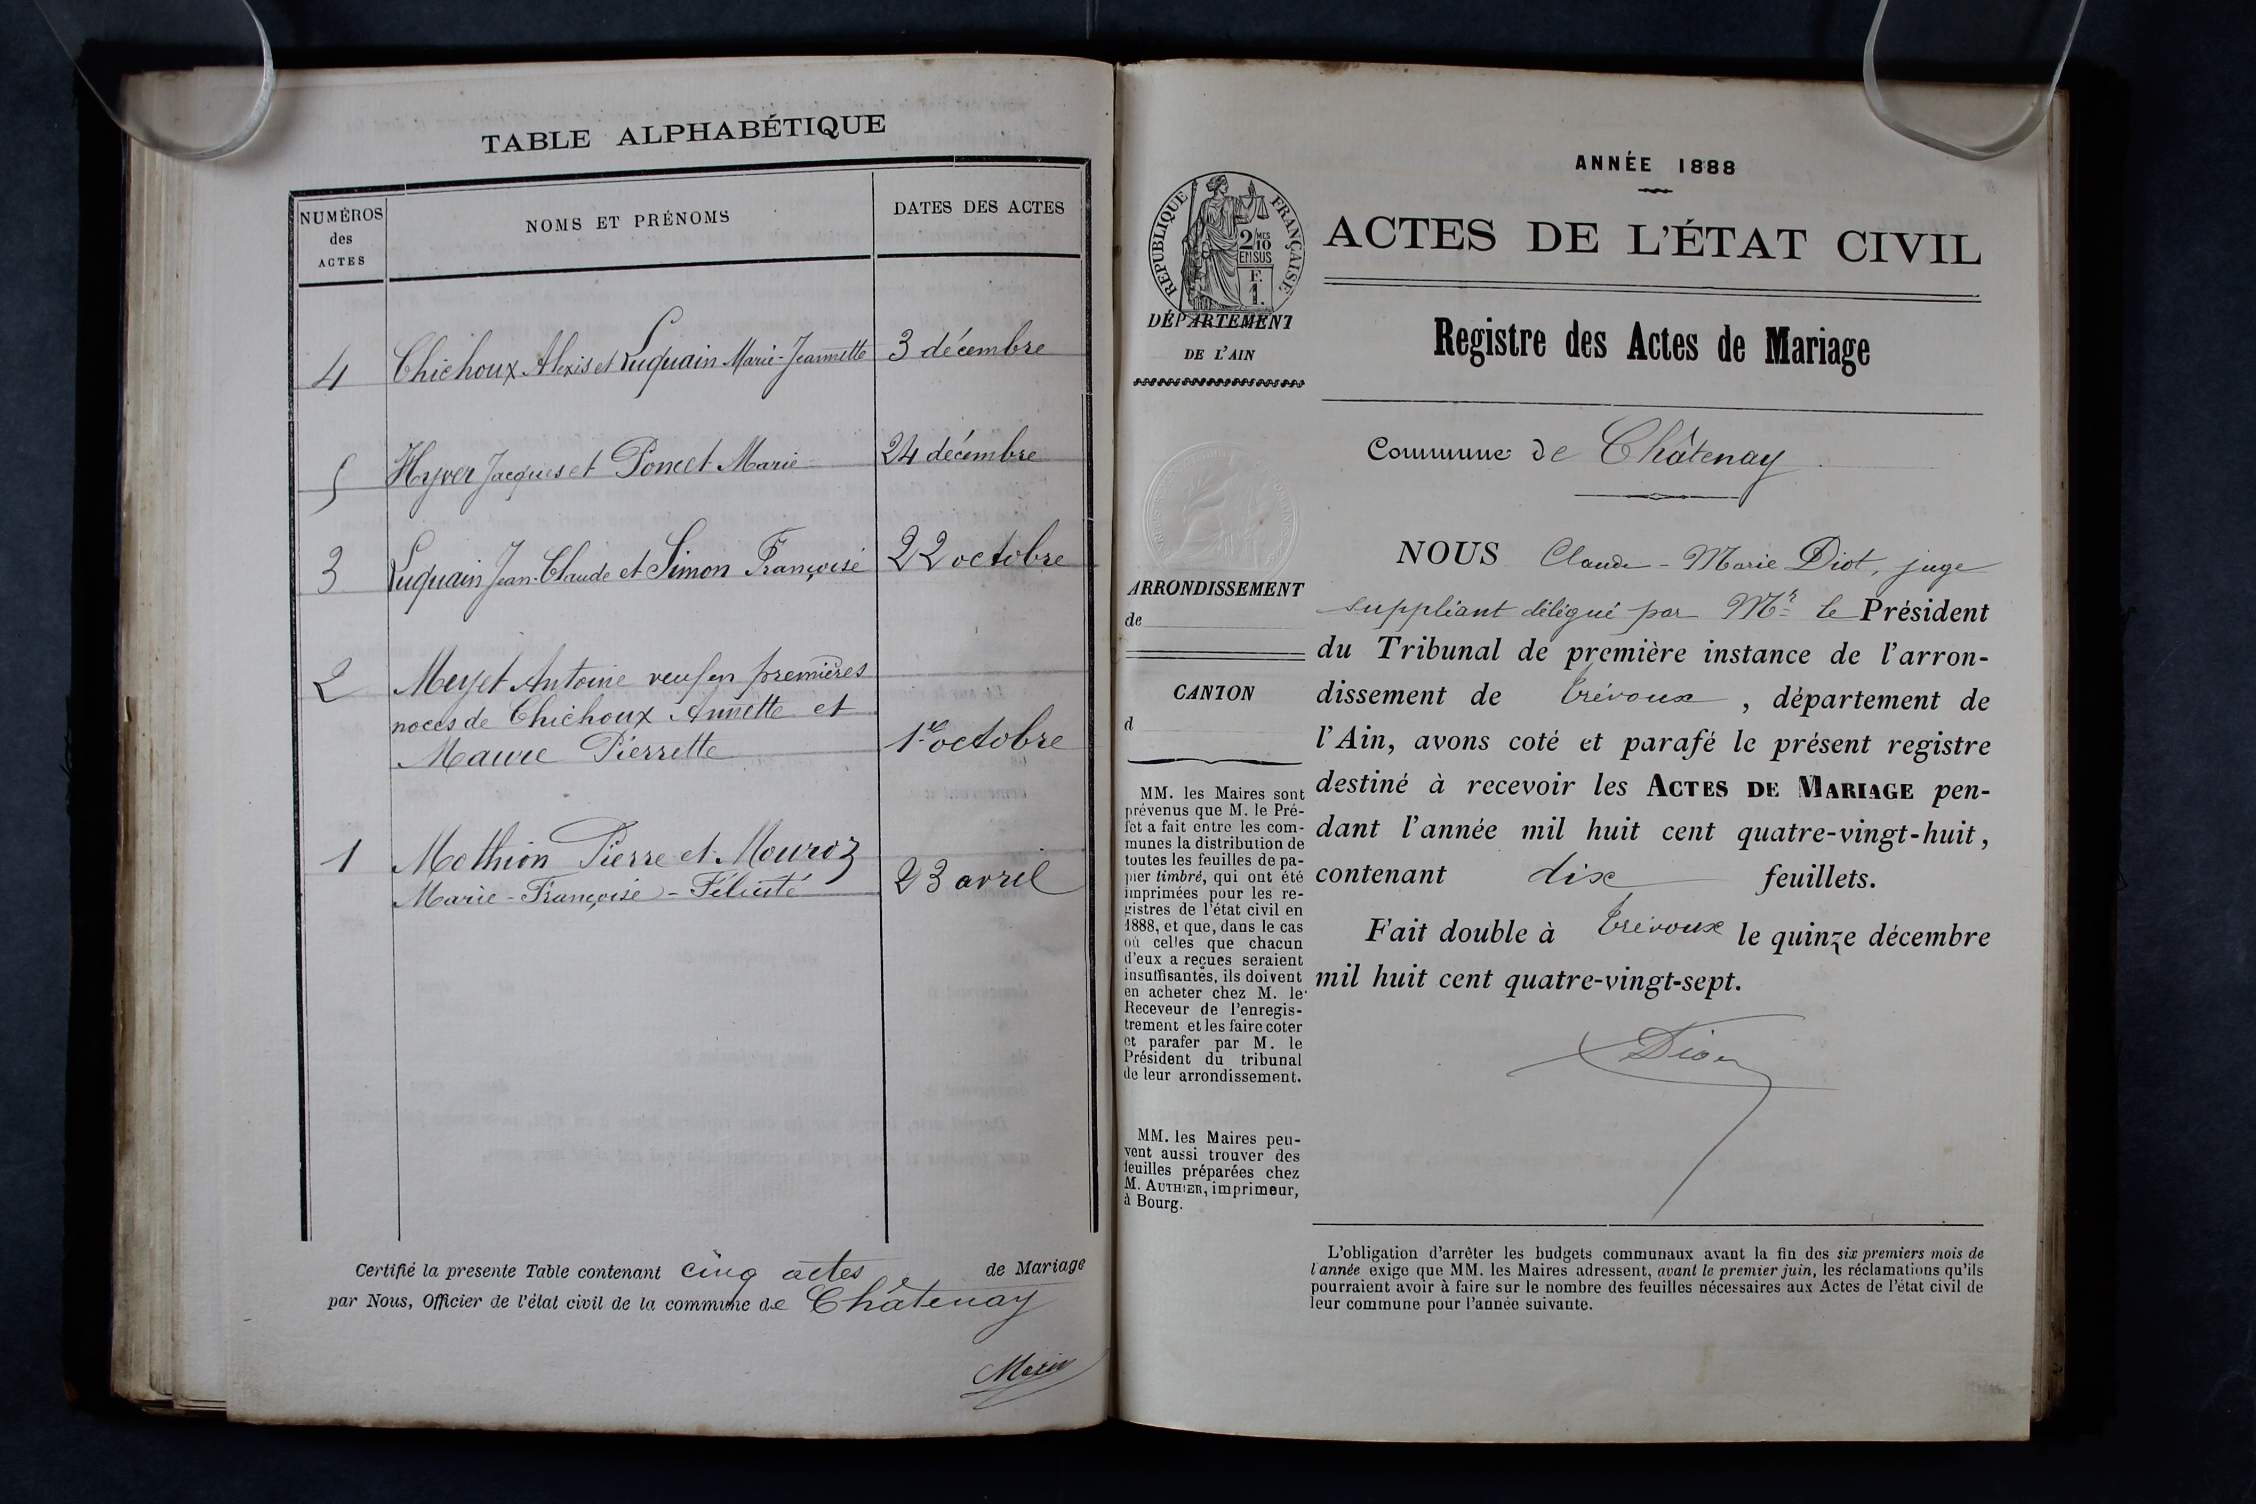 TABLE ALPHABÉTIQUE
NUMÉROS
des
ACTES
NOMS ET PRÉNOMS
DATES DES ACTES
4 Chichoux Alexis et Luquain Marie-Jeannette 3 décembre
5 Hyver Jacques et Poncet Marie 24 décembre
3 Luquain Jean-Claude et Simon Françoise 22 octobre
2 Meyet Antoine veuf en premières
noces de Chichoux Annette et
Pierrette 1er octobre
1 Mothion Pierre et Mouroz
Marie-Françoise-Félicité 23 avril
Certifié la presente Table contenant cinq actes de Mariage
par Nous, Officier de l'état civil de la commune de Châtenay
ANNÉE 1888
RÉPUBLIQUE FRANÇAISE
2/10 MES
EN SUS
F
1.
DÉPARTEMENT
DE L'AIN
ARRONDISSEMENT
de
CANTON
d
MM. les Maires sont
prévenus que M. le Pré-
fet a fait entre les com-
munes la distribution de
toutes les feuilles de pa-
pier timbré, qui ont été
imprimées pour les re-
gistres de l'état civil en
1888, et que, dans le cas
où celles que chacun
d'eux a reçues seraient
insuffisantes, ils doivent
en acheter chez M. le
Receveur de l'enregis-
trement et les faire coter
et parafer par M. le
Président du tribunal
de leur arrondissement.
MM. les Maires peu-
vent aussi trouver des
feuilles préparées chez
M. AUTHIER, imprimeur,
à Bourg.
ACTES DE L'ÉTAT CIVIL
Registre des Actes de Mariage
Commune de Châtenay
NOUS Claude-Marie Diot, juge
suppliant délégué par Mr le Président
du Tribunal de première instance de l'arron-
dissement de Trévoux, département de
l'Ain, avons coté et parafé le présent registre
destiné à recevoir les ACTES DE MARIAGE pen-
dant l'année mil huit cent quatre-vingt-huit,
contenant dix feuillets.
Fait double à Trévoux le quinze décembre
mil huit cent quatre-vingt-sept.
Diot
L'obligation d'arrêter les budgets communaux avant la fin des six premiers mois de
l'année exige que MM. les Maires adressent, avant le premier juin, les réclamations qu'ils
pourraient avoir à faire sur le nombre des feuilles nécessaires aux Actes de l'état civil de
leur commune pour l'année suivante.